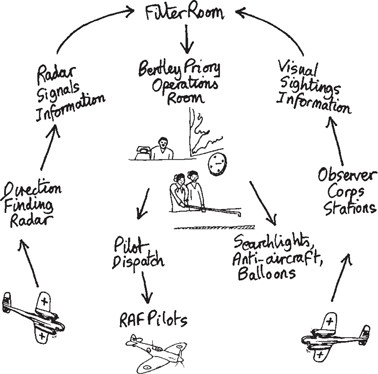 Filter Room
Radar
Signals
Information
Bentley Priory
Operations
Room
Visual
Sightings
Information
Direction
Finding
Radar
Observer
Corps
Stations
Pilot
Dispatch
Searchlights,
Anti-aircraft,
Balloons
RAF Pilots